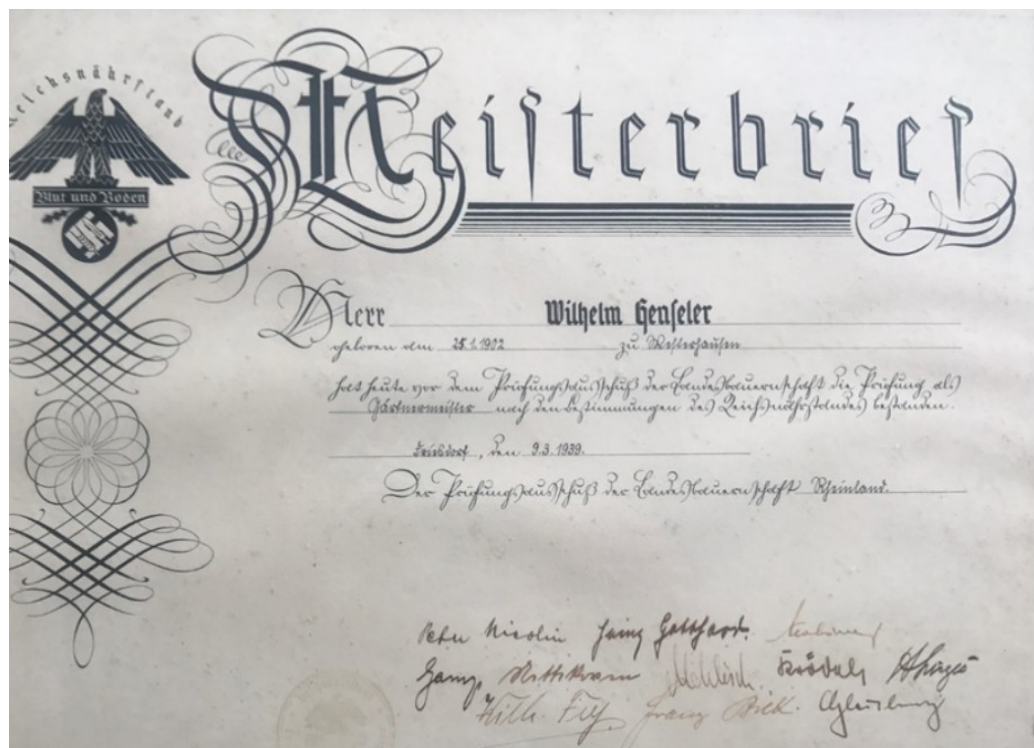 Reichsnährstand
Blut und Boden
Meisterbrief
Herr Wilhelm Henseler
geboren am 25.1.1902 zu Westerhausen
hat heute vor dem Prüfungsausschuß der Landesbauernschaft die Prüfung als
Gärtnermeister nach den Bestimmungen des Reichsnährstandes bestanden.
Friesdorf, den 9.3.1939.
Der Prüfungsausschuß der Landesbauernschaft Rheinland.
Peter Nicolin Heinz Gotthard
Wilh. Franz